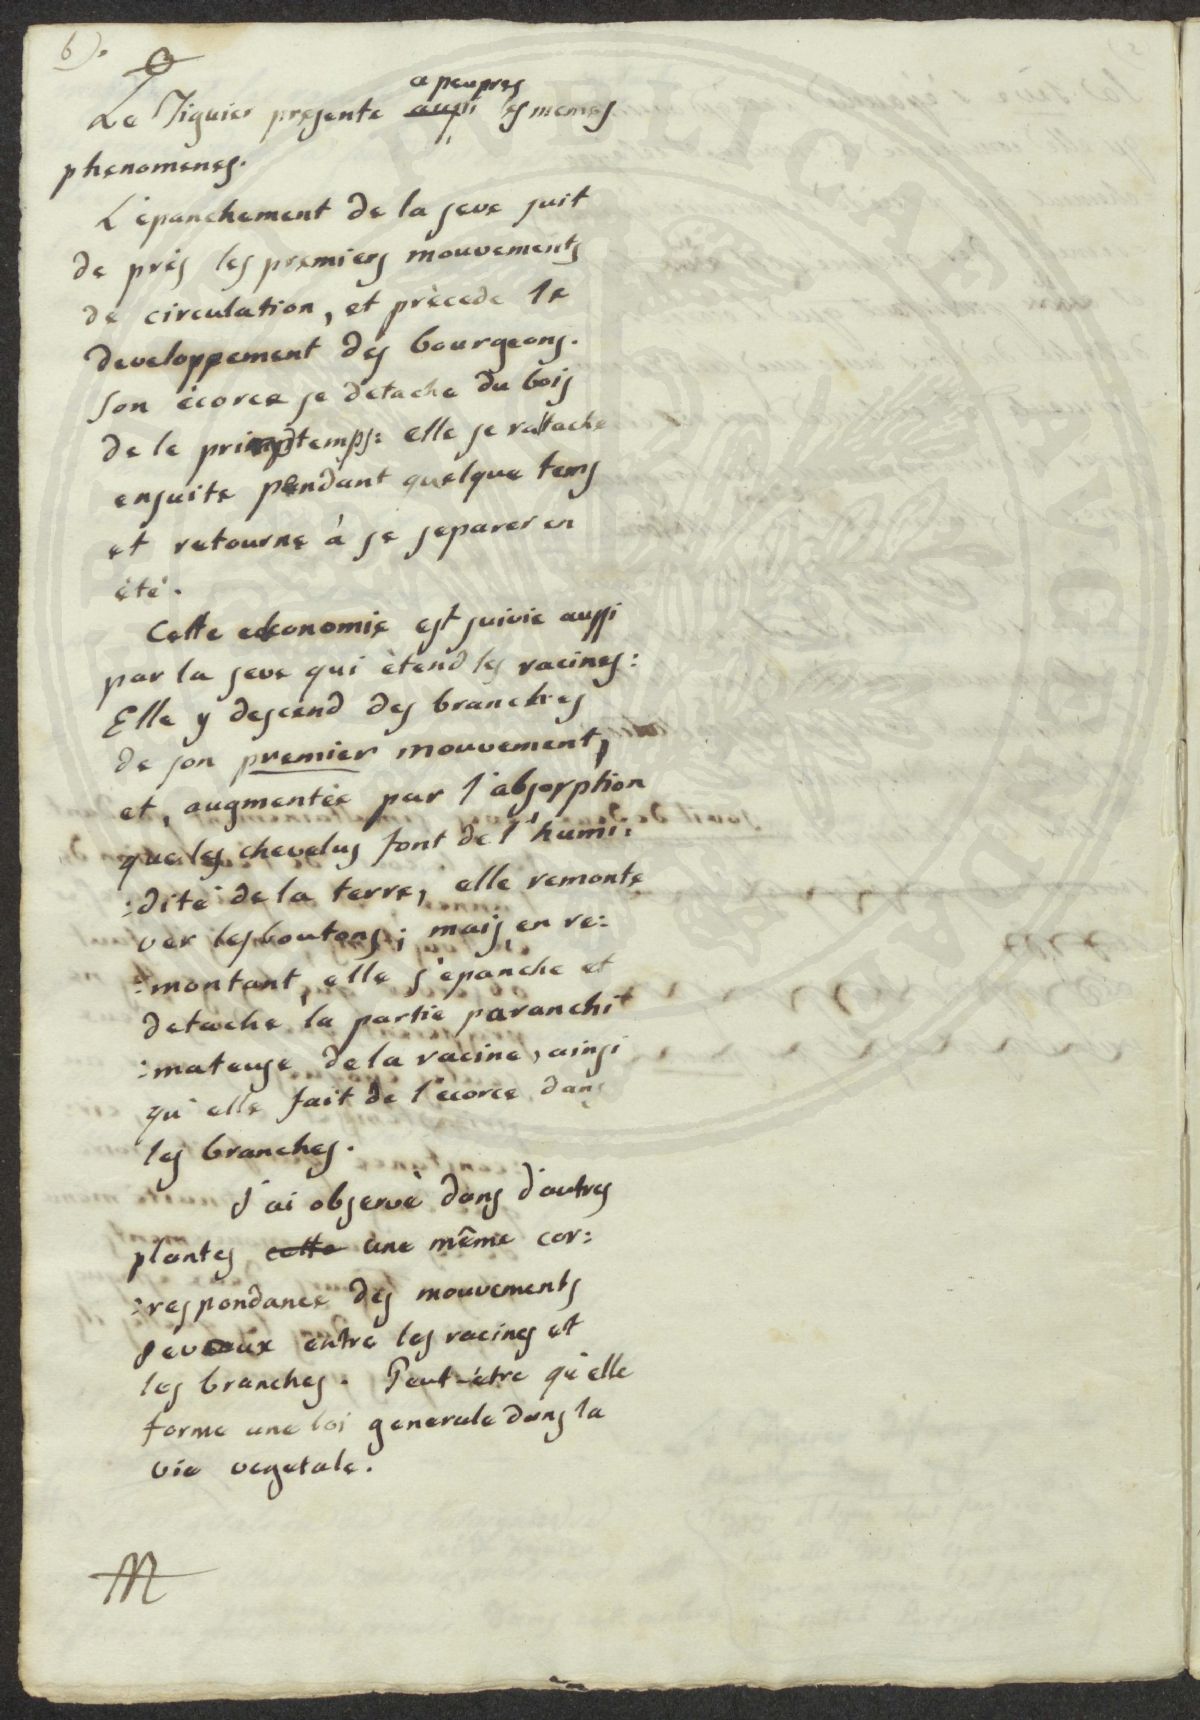 6).
a peupres
Le Figuier presente aussi les memes
phenomenes.
L'epanchement de la seve suit
de près les premiers mouvements
de circulation, et précede le
developpement des bourgeons.
Son écorce se detache du bois
de le printemps: elle se rattache
ensuite pendant quelque tems
et retourne à se separer en
été.
Cette economie est suivie aussi
par la seve qui étend les racines:
Elle y descend des branches
de son premier mouvement,
et, augmentée par l'absorption
que les chevelus font de l'humi:
:dité de la terre, elle remonte
ver les boutons; mais, en re:
:montant, elle s'epanche et
detache la partie paranchi
:mateuse de la racine, ainsi
qu'elle fait de l'ecorce dans
les branches.
J'ai observé dans d'autres
plantes cette une même cor:
:respondance des mouvements
seveaux entre les racines et
les branches. Peut-être qu'elle
forme une loi generale dans la
vie vegetale.